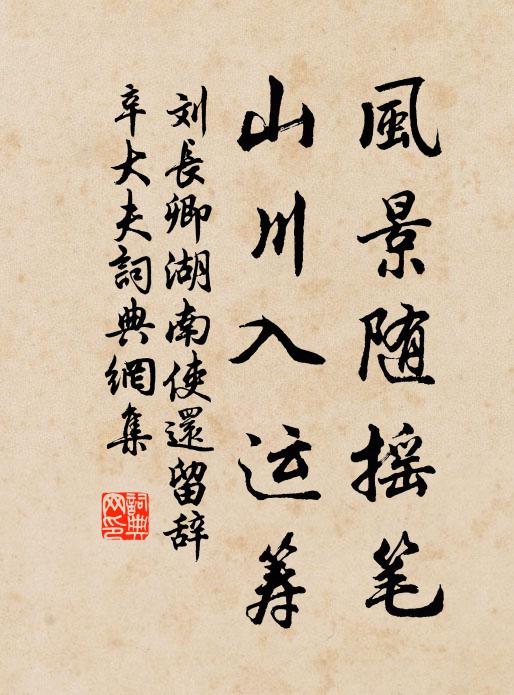 風景随摇笔
山川入运筹
刘長卿湖南使還留辞
辛大夫詞典網集
詞典
网印